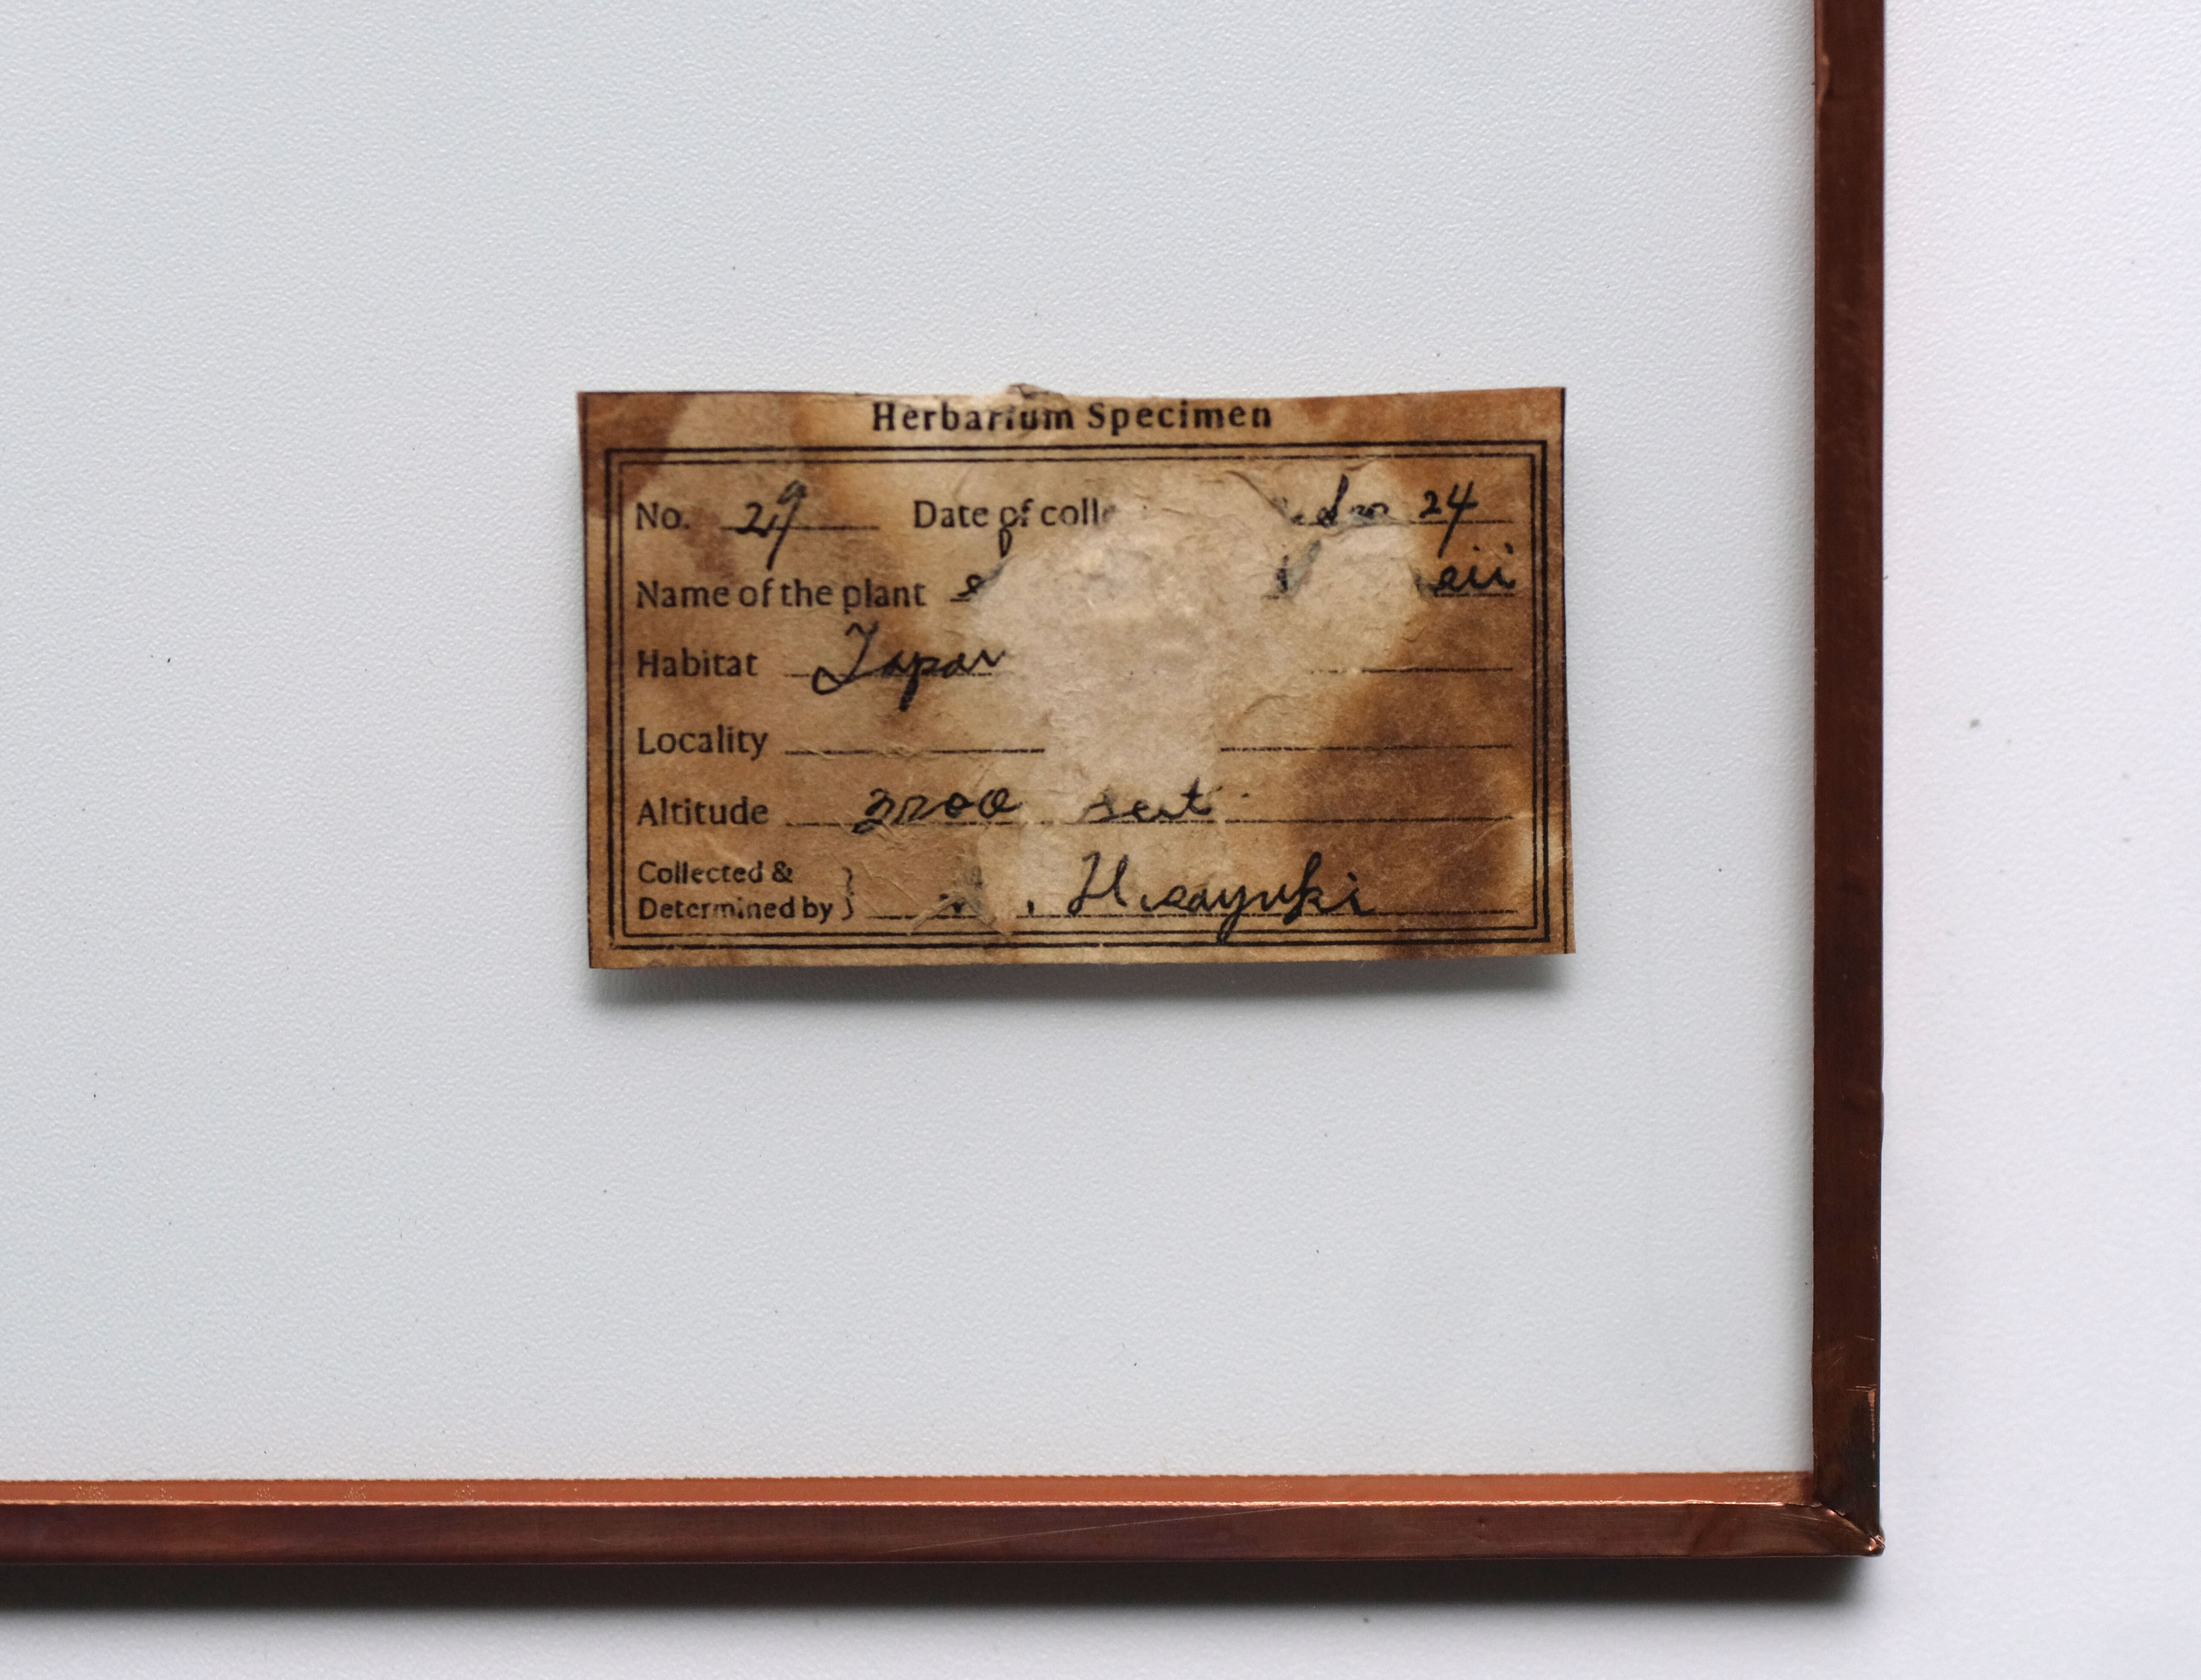 Herbarium Specimen
No. 29 Date of colle 24
Name of the plant eii
Habitat Japan
Locality
Altitude
Collected &
Determined by } Hisayuki